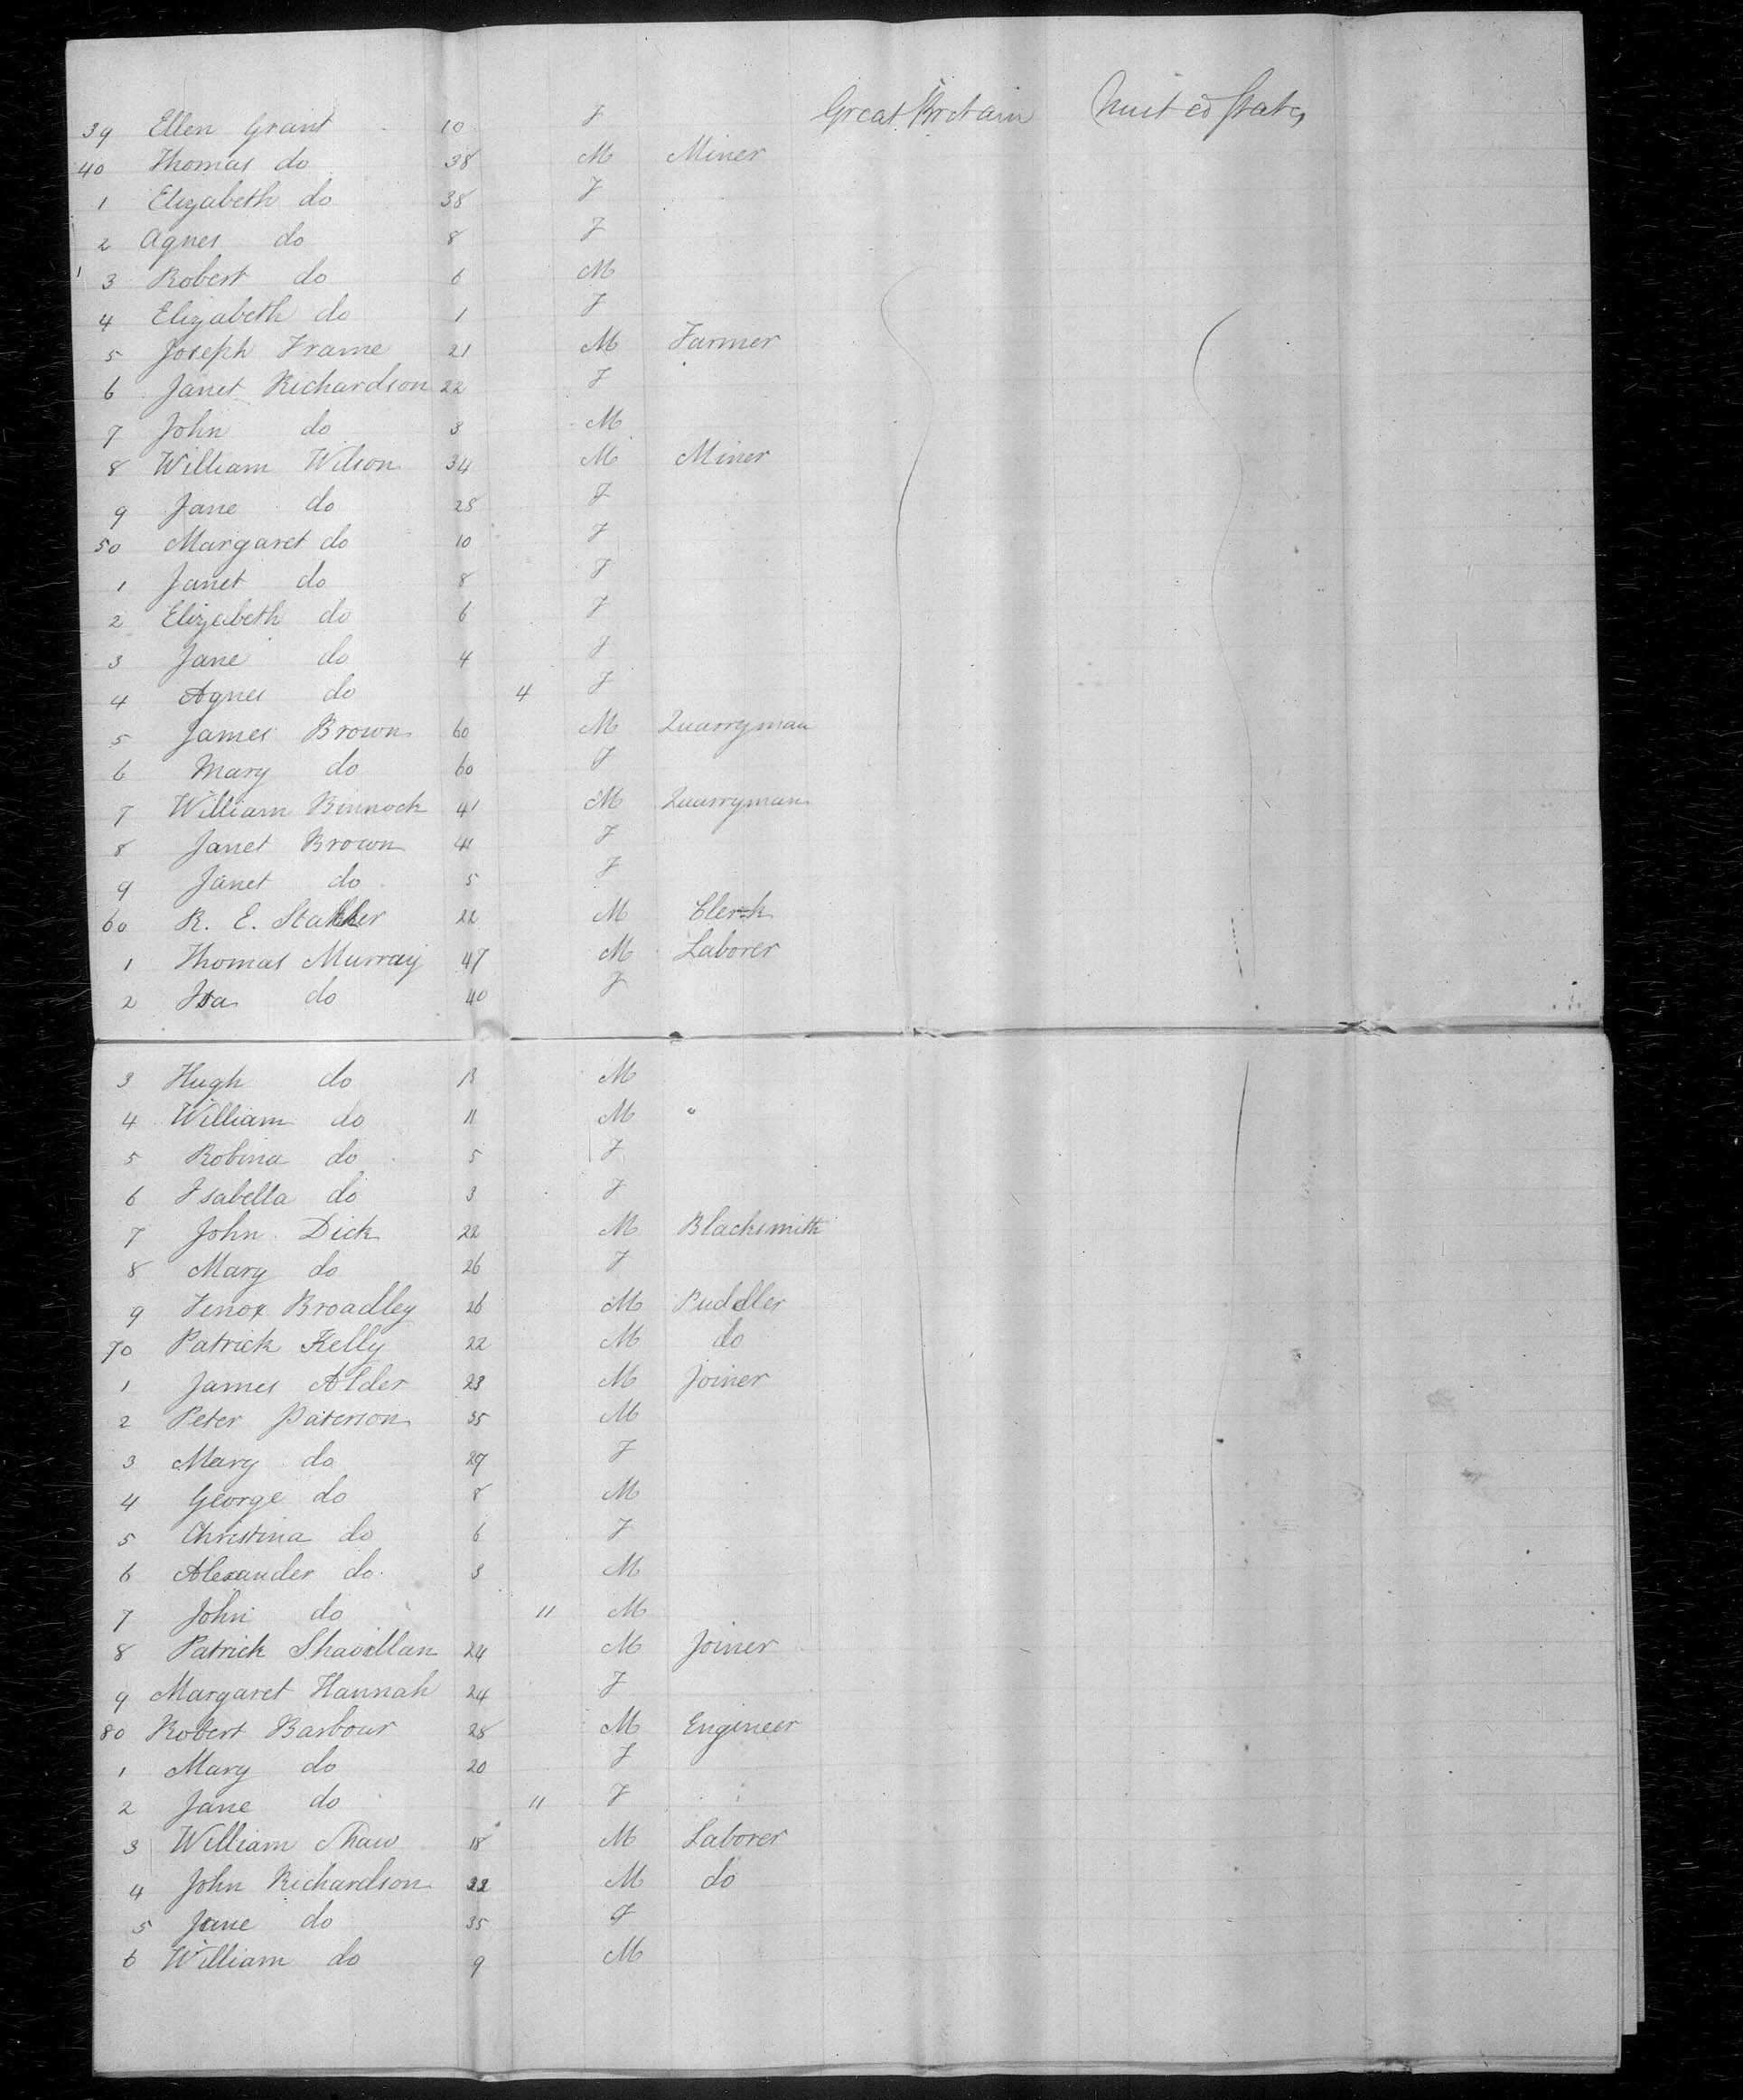 39 Ellen Grant 10 F Great Britain United States
40 Thomas do 38 M Miner
1 Elizabeth do 38 F
2 Agnes do 8 F
3 Robert do 6 M
4 Elizabeth do 1 F
5 Joseph Frame 21 M Farmer
6 Janet Richardson 22 F
7 John do 3 M
8 William Wilson 34 M Miner
9 Jane do 28 F
50 Margaret do 10 F
1 Janet do 8 F
2 Elizabeth do 6 F
3 Jane do 4 F
4 Agnes do 4 F
5 James Brown 60 M Quarryman
6 Mary do 60 F
7 William Binnock 41 M Quarryman
8 Janet Brown 41 F
9 Janet do 5 F
60 R. E. 22 M Clerk
1 Thomas Murray 47 M Laborer
2 Isa do 40 F
3 Hugh do 13 M
4 William do 11 M
5 Robina do 5 F
6 Isabella do 3 F
7 John Dick 22 M Blacksmith
8 Mary do 26 F
9 Broadley 26 M Puddler
70 Patrick Kelly 22 M do
1 James Alder 23 M Joiner
2 Peter Paterson 35 M
3 Mary do 29 F
4 George do 8 M
5 Christina do 6 F
6 Alexander do 3 M
7 John do 11 M
8 Patrick 24 M Joiner
9 Margaret Hannah 24 F
80 Robert Barbour 28 M Engineer
1 Mary do 20 F
2 Jane do 11 F
3 William Shaw 18 M Laborer
4 John Richardson 32 M do
5 Jane do 35 F
6 William do 9 M